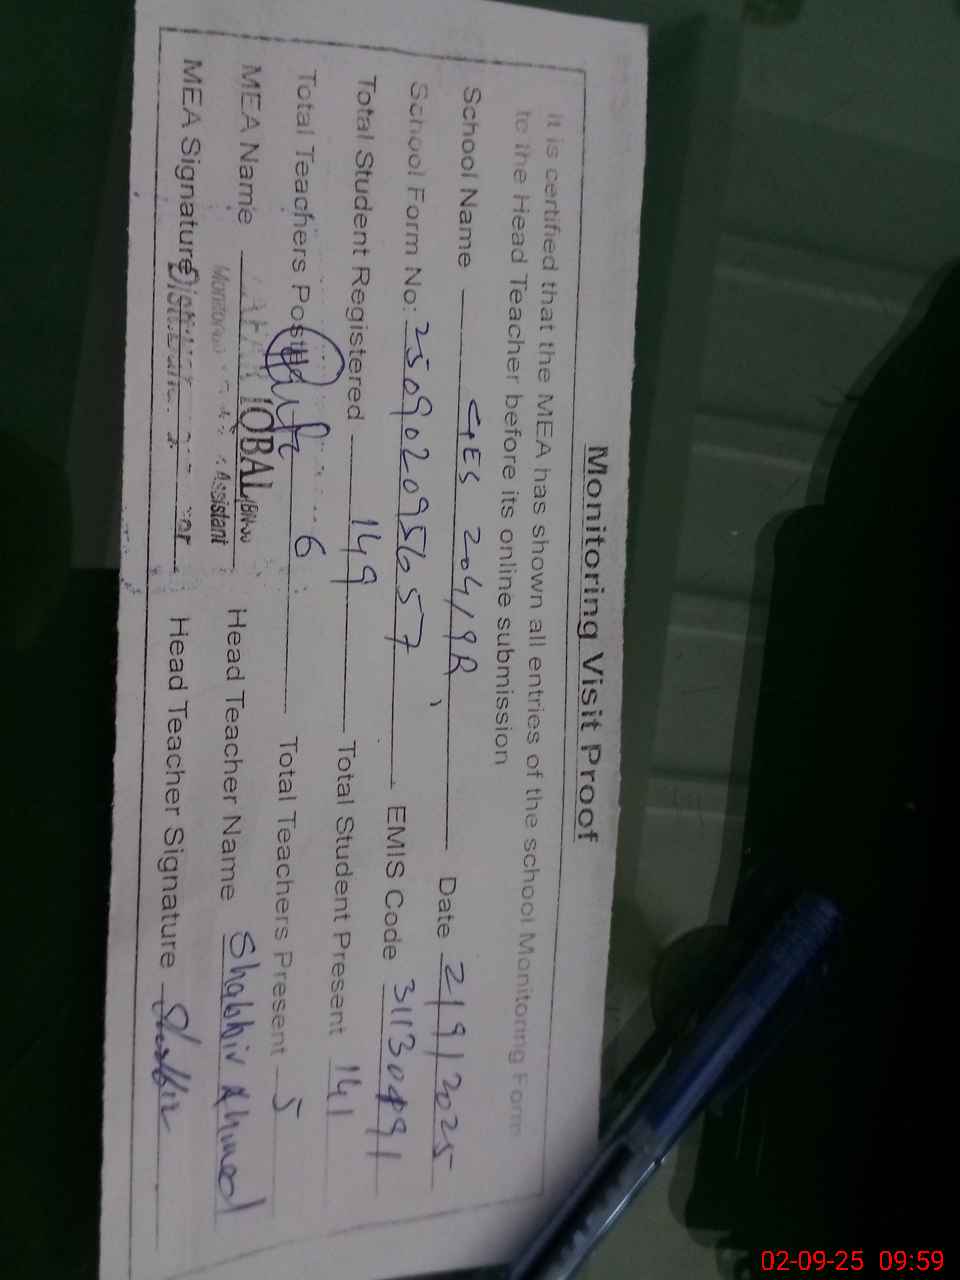 Monitoring Visit Proof
It is certified that the MEA has shown all entries of the school Monitoring Form
to the Head Teacher before its online submission
School Name GES 204/9R Date 2/9/2025
School Form No: 250902095657 EMIS Code 31130491
Total Student Registered 149 Total Student Present 141
Total Teachers Posted 6 Total Teachers Present 5
MEA Name IQBAL Head Teacher Name Shabbir Ahmed
Monitoring Assistant
MEA Signature Head Teacher Signature Shabbir
02-09-25 09:59